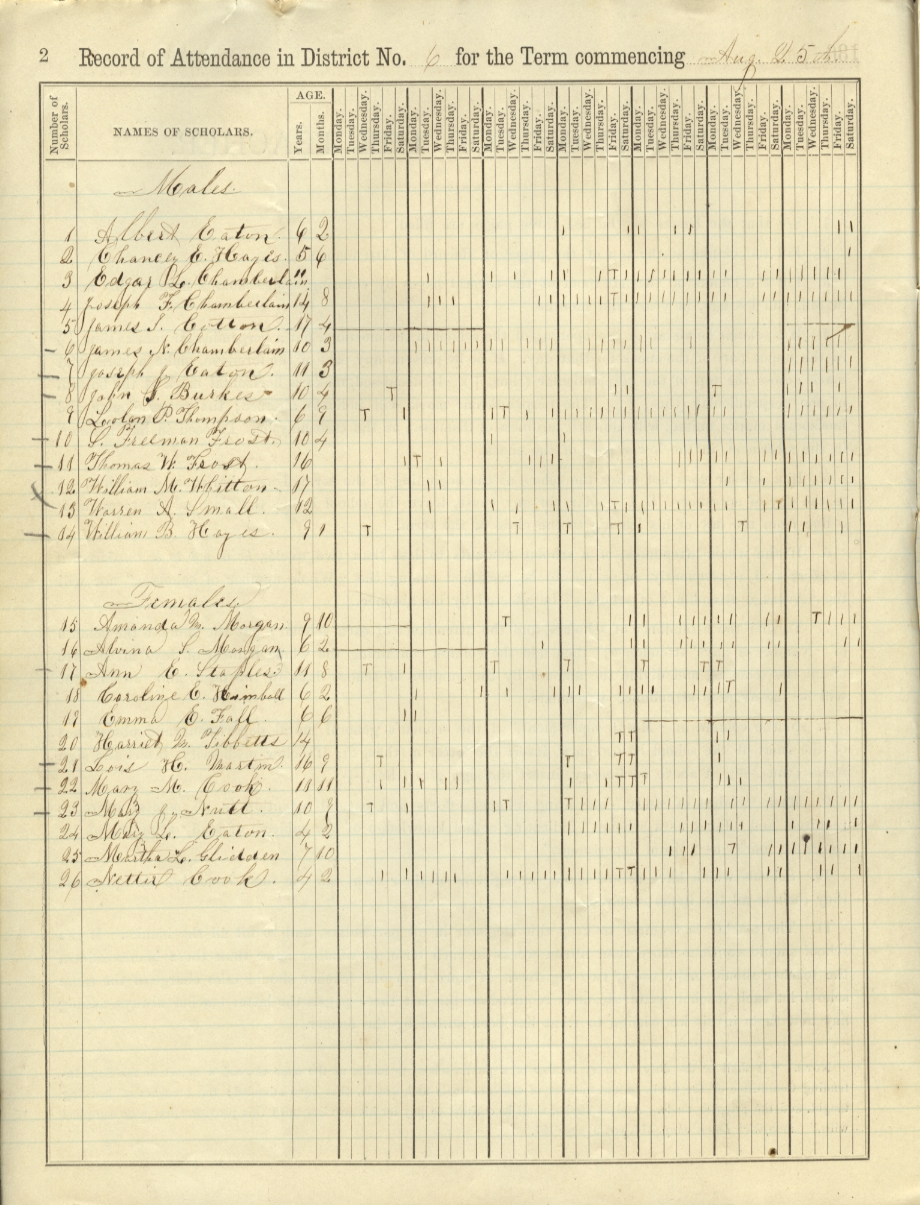 2 Record of Attendance in District No. 6 for the Term commencing Aug. 25th
Number of Scholars. NAMES OF SCHOLARS. AGE. Years. Months. Monday. Tuesday. Wednesday. Thursday. Friday. Saturday. Monday. Tuesday. Wednesday. Thursday. Friday. Saturday. Monday. Tuesday. Wednesday. Thursday. Friday. Saturday. Monday. Tuesday. Wednesday. Thursday. Friday. Saturday. Monday. Tuesday. Wednesday. Thursday. Friday. Saturday. Monday. Tuesday. Wednesday. Thursday. Friday. Saturday. Monday. Tuesday. Wednesday. Thursday. Friday. Saturday.
Males.
1 Albert Eaton. 6 2
2 Chancey E. Hayes. 5 6
3 Edgar L. Chamberlain 11
4 Joseph F. Chamberlain 14 8
5 James S. Cotton. 17 4
6 James N. Chamberlain 10 3
7 Joseph J. Eaton. 11 3
8 John S. Burkes 10 4
9 P. Thompson. 6 9
10 S. Freeman Frost. 10 4
11 Thomas W. Frost. 16
12 William M. Whitton 17
13 Warren A. Small. 12
14 William B. Hayes. 9 1
Females.
15 Amanda M. Morgan. 9 10
16 Alvina S. Morgan. 6 2
17 Ann E. Staples. 11 8
18 Caroline E. Kimball 6 2
19 Emma E. Fall. 6 6
20 Harriet M. Tibbetts 14
21 Lois H. Martin. 16 9
22 Mary M. Cook. 11 11
23 Mary J. Nutt. 10 9
24 Mary L. Eaton. 4 2
25 Martha L. Glidden 7 10
26 Nettie Cook. 4 2